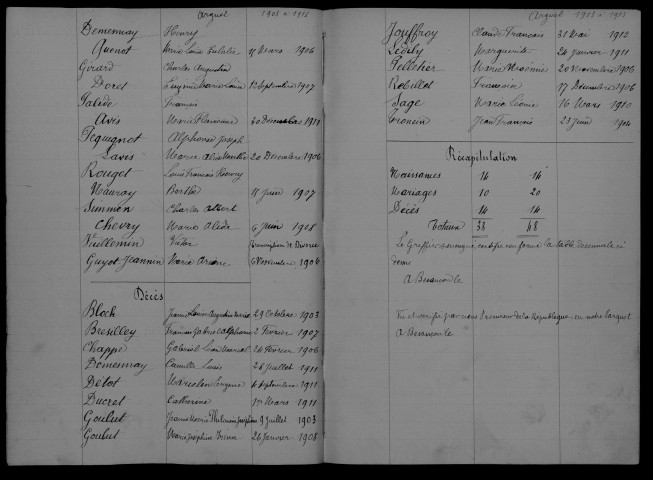 Arguel 1903 à 1912
Demesmay Henry
Quenot Marie Louise Eulalie 15 Mars 1906
Girard Charles Augustin
Doret Eugénie Marie Louise 12 Septembre 1907
Valide François
Avis Marie 30 Décembre 1911
Pequignot Alphonse Joseph
Laves Marie 20 Décembre 1906
Rouget Louis François
Mauray Berthe 15 Juin 1907
Simmen Charles Albert
Chevry Marie 6 Juin 1908
Vuillemin Victor Transcription de Divorce
Guyot Jeannin Marie 6 Novembre 1906
Décès
Bloch 29 Octobre 1903
Bresilley François Gabriel Alphonse 2 Février 1907
Chappe Gabriel Février 1906
Demesmay Camille Louis 26 Juillet 1911
Détot Septembre 1911
Ducret Catherine 15 Mars 1911
Goulut Jeanne Marie Joséphine 9 Juillet 1903
Goulut Marie Joséphine 26 Janvier 1908
Arguel 1903 à 1912
Jouffroy Claude François 31 Mai 1912
Ledily Marguerite 24 Janvier 1911
Pelletier Marie 20 Novembre 1906
Robillot Françoise 17 Décembre 1906
Sage Marie Léonie 16 Mars 1910
Troncin Jean François 23 Juin 1904
Récapitulation
Naissances 14 14
Mariages 10 20
Décès 14 14
Totaux 38 48
Le Greffier soussigné certifie conforme la table décennale ci
dessus
A Besançon le
Vu et vérifié par nous Procureur de la République en notre parquet
A Besançon le